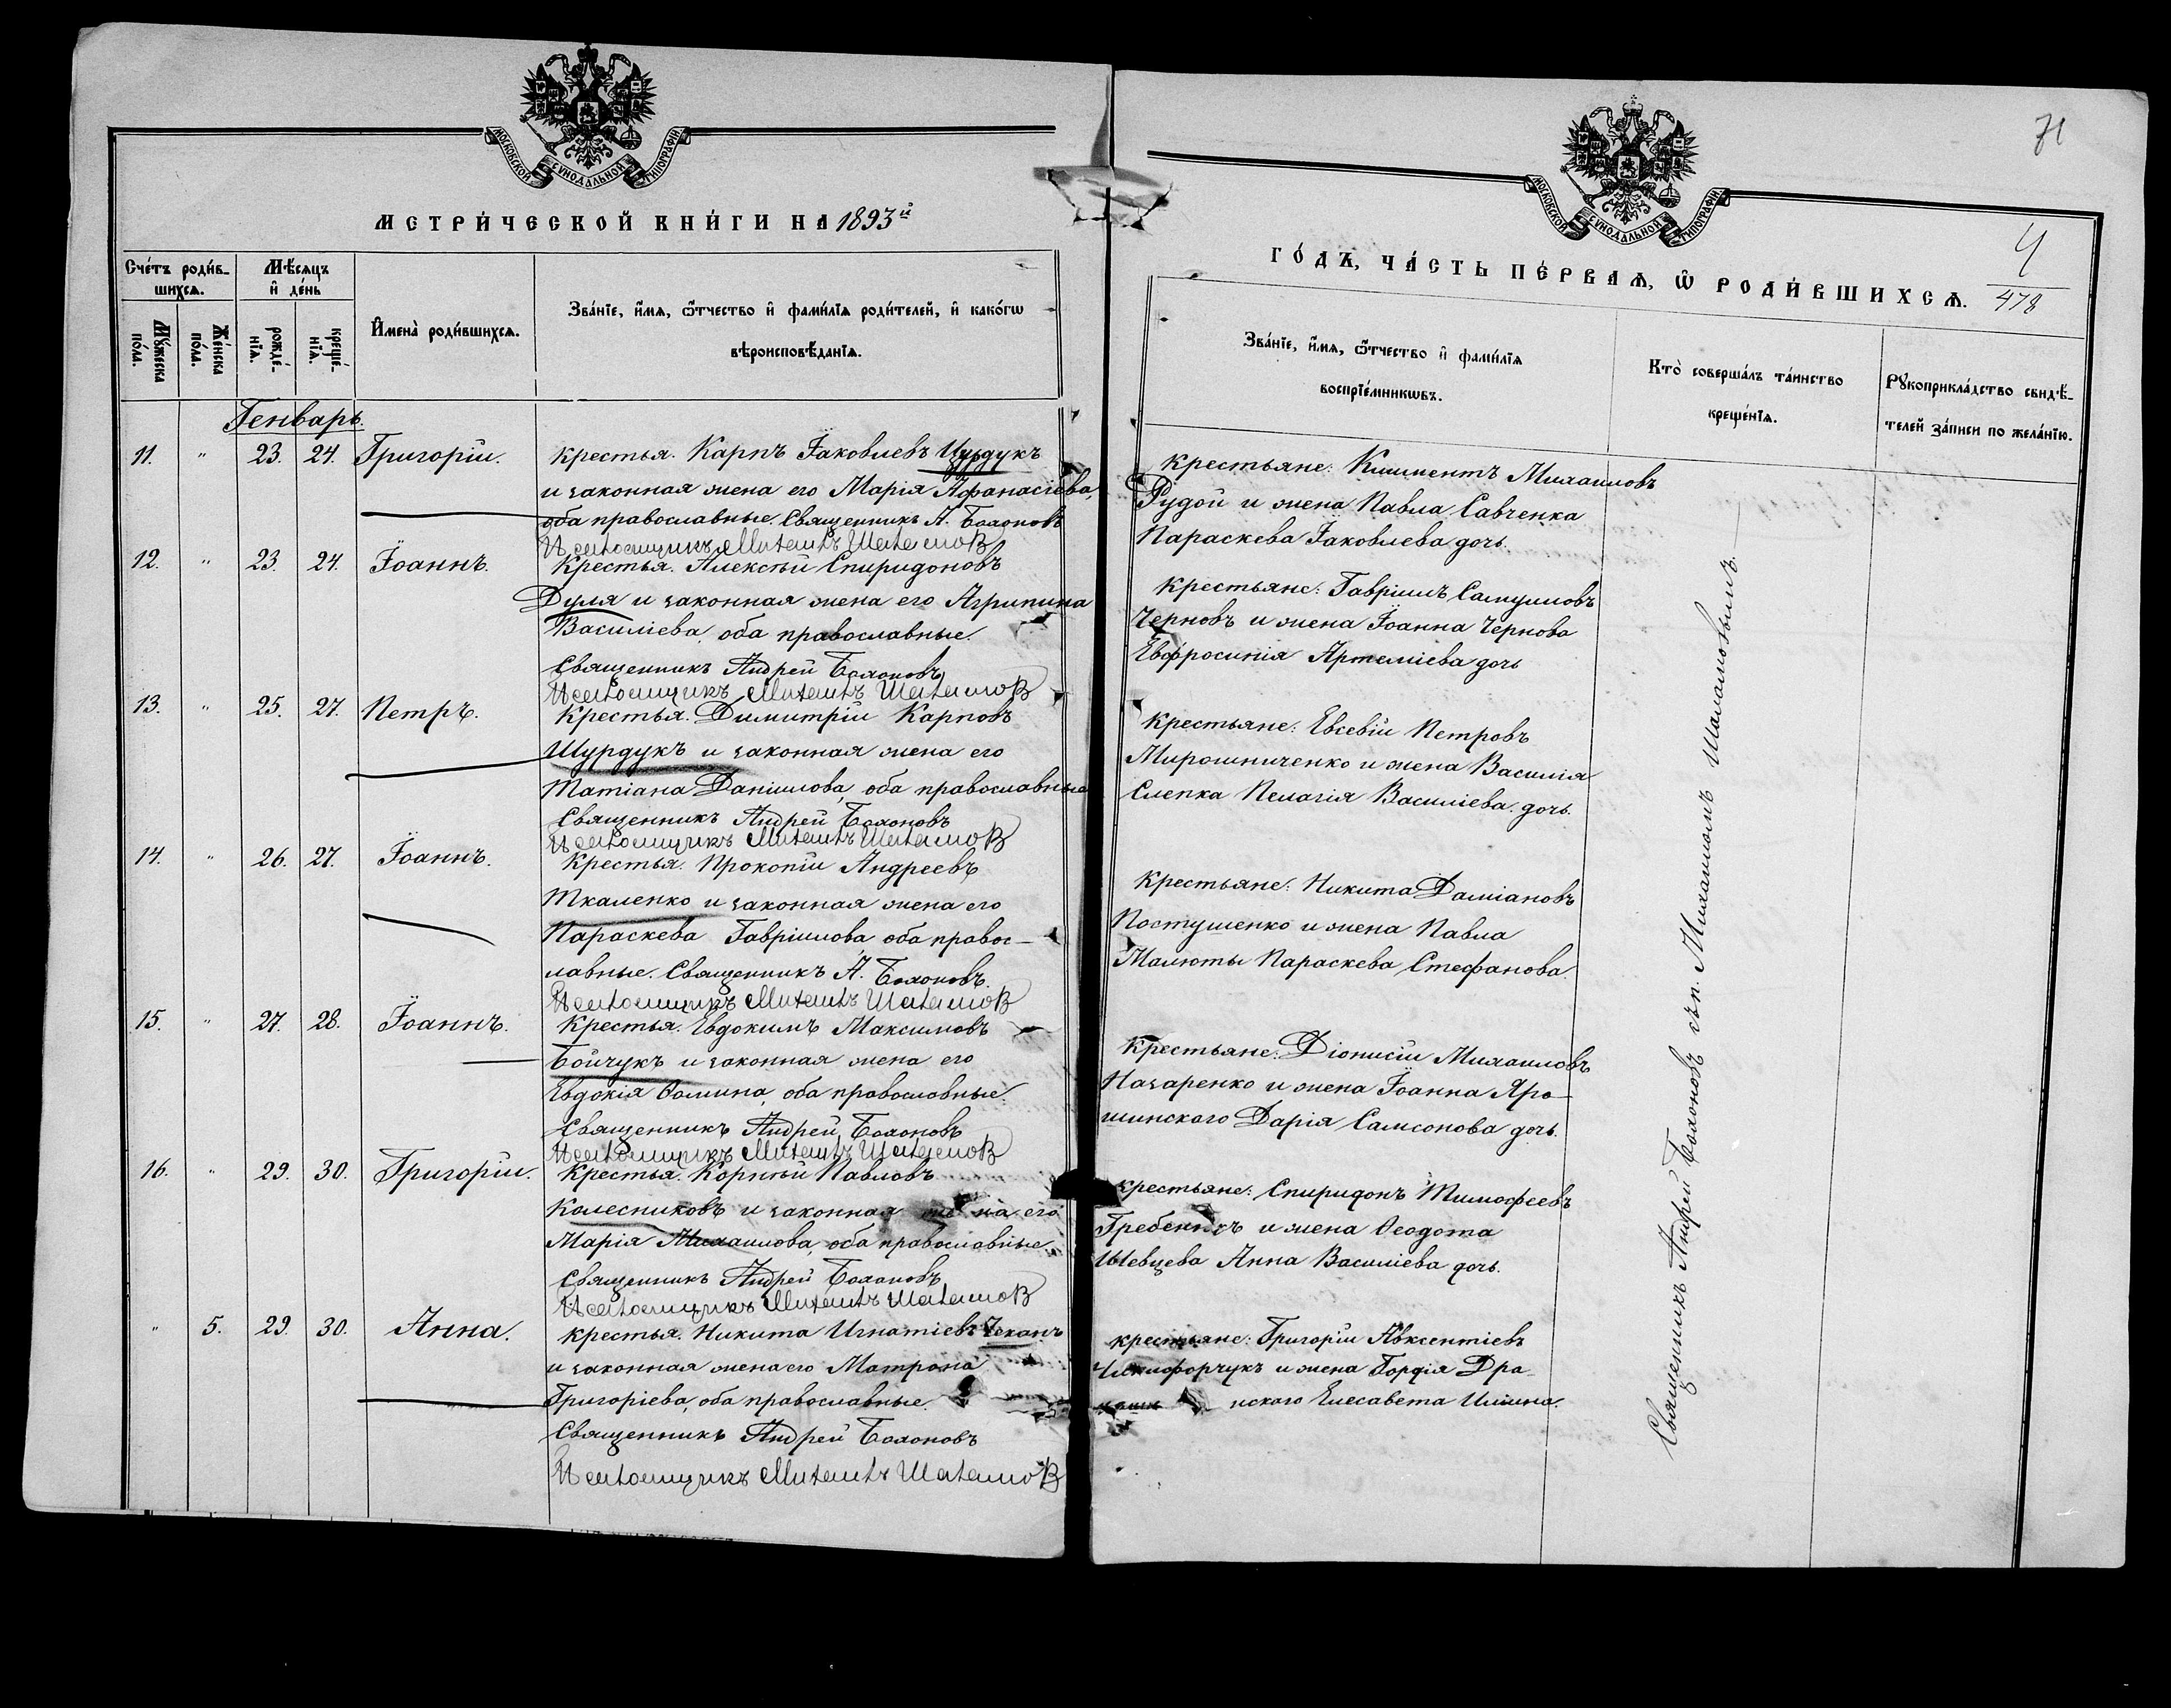 МОСКОВСКОЙ СѴНОДАЛЬНОЙ ТИПОГРАФІИ
МЕТРИ́ЧЕСКОЙ КНИ́ГИ НА 1893й
Сче́тъ роди́в-
шихсѧ.
Мꙋ́жеска по́ла.
Же́нска по́ла.
Мѣ́сѧцъ и҆ де́нь
рожде́-
нїѧ.
креще́-
нїѧ.
И҆мена̀ роди́вшихсѧ.
Зва́нїе, и҆́мѧ, ѻ҆́тчество и҆ фами́лїѧ роди́телей, и҆ како́гѡ
вѣроисповѣ́данїѧ.
Генварь.
11. " 23. 24. Григорій. Крестья. Карпъ Іаковлевъ Цурдукъ
и законная жена его Марія Афанасіева,
оба православные. Священникъ А. Болоновъ
Псаломщикъ Михаилъ Шаламов
12. " 23. 24. Іоаннъ. Крестья. Алексѣй Спиридоновъ
Дуля и законная жена его Агрипина
Василіева, оба православные.
Священникъ Андрей Болоновъ
Псаломщикъ Михаилъ Шаламов
13. " 25. 27. Петръ. Крестья. Димитрій Карповъ
Шурдукъ и законная жена его
Татіана Даніилова, оба православные
Священникъ Андрей Болоновъ
Псаломщикъ Михаилъ Шаламов
14. " 26. 27. Іоаннъ. Крестья. Прокопій Андреевъ
Ткаленко и законная жена его
Параскева Гавріилова оба правос-
лавные. Священникъ А. Болоновъ.
Псаломщикъ Михаилъ Шаламов
15. " 27. 28. Іоаннъ. Крестья. Евдокимъ Максимовъ
Бойчукъ и законная жена его
Евдокія Ѳомина, оба православные.
Священникъ Андрей Болоновъ
Псаломщикъ Михаилъ Шаламов
16. " 29. 30. Григорій. Крестья. Корнѣй Павловъ
Колесниковъ и законная жена его
Марія Михаилова, оба православные
Священникъ Андрей Болоновъ
Псаломщикъ Михаилъ Шаламов
" 5. 29. 30. Анна. Крестья. Никита Игнатіевъ Чеканъ
и законная жена его Матрона
Григоріева, оба православные.
Священникъ Андрей Болоновъ
Псаломщикъ Михаилъ Шаламов
71
МОСКОВСКОЙ СѴНОДАЛЬНОЙ ТИПОГРАФІИ
ГО́ДЪ, ЧА́СТЬ ПЕ́РВАѦ, Ѽ РОДИ́ВШИХСѦ.
4
478
Зва́нїе, и҆́мѧ, ѻ҆́тчество и҆ фами́лїѧ
воспрїе́мникѡвъ.
Кто̀ соверша́лъ та́инство
креще́нїѧ.
Рꙋкоприкла́дство свидѣ́-
телей за́писи по жела́нїю.
Крестьяне: Климентъ Михаиловъ
Рудой и жена Павла Савченка
Параскева Іаковлева дочь.
Крестьяне: Гавріилъ Самуиловъ
Черновъ и жена Іоанна Чернова
Евфросинія Артеміева дочь
Крестьяне: Евсевій Петровъ
Мирошниченко и жена Василія
Слепка Пелагія Василіева дочь.
Крестьяне: Никита Даміановъ
Постушенко и жена Павла
Малюты Параскева Стефанова.
Крестьяне: Діонисій Михаиловъ
Назаренко и жена Іоанна Яро-
шинского Дарія Самсонова дочь.
Крестьяне: Спиридонъ Тимофеевъ
Гребеникъ и жена Ѳеодота
Шевцева Анна Василіева дочь.
Крестьяне: Григорій Авксентіевъ
Никифорчукъ и жена Гордія Дра-
нского Елесавета Иліина.
Священникъ Андрей Болоновъ съ п. Михаиломъ Шаламовымъ.